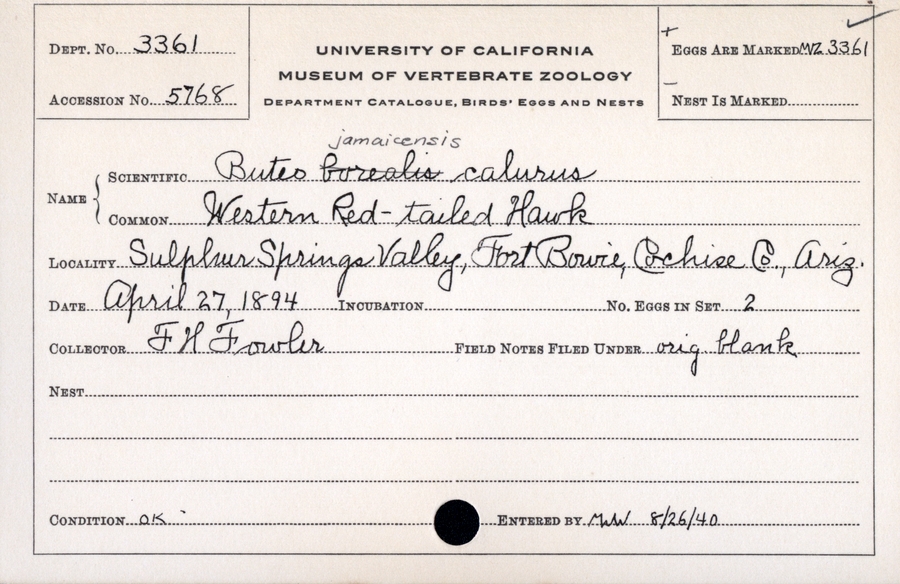 DEPT. No. 3361
ACCESSION No. 5768
UNIVERSITY OF CALIFORNIA
MUSEUM OF VERTEBRATE ZOOLOGY
DEPARTMENT CATALOGUE, BIRDS' EGGS AND NESTS
+
EGGS ARE MARKED MVZ 3361
–
NEST IS MARKED
jamaicensis
NAME SCIENTIFIC Buteo borealis calurus
COMMON Western Red-tailed Hawk
LOCALITY Sulphur Springs Valley, Fort Bowie, Cochise Co., Ariz.
DATE April 27, 1894 INCUBATION NO. EGGS IN SET 2
COLLECTOR F H Fowler FIELD NOTES FILED UNDER orig. blank
NEST
CONDITION OK ENTERED BY 8/26/40